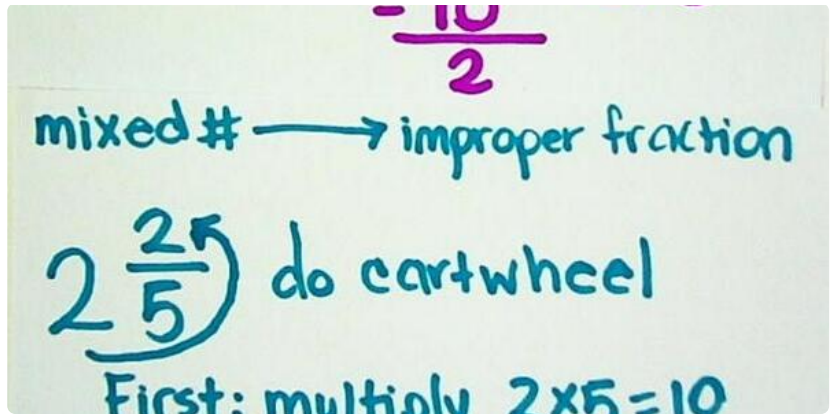 - 10
2
mixed # → improper fraction
2 2/5 do cartwheel
First: multiply 2x5=10